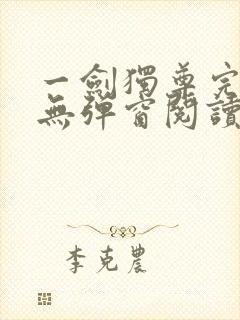 一劍獨尊完
無彈窗閱讀
李克農